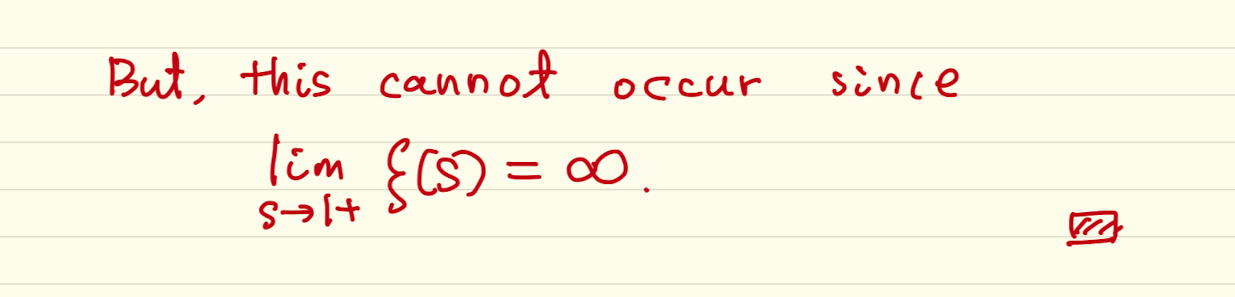 But, this cannot occur since
lim ξ(s) = ∞.
s→1+